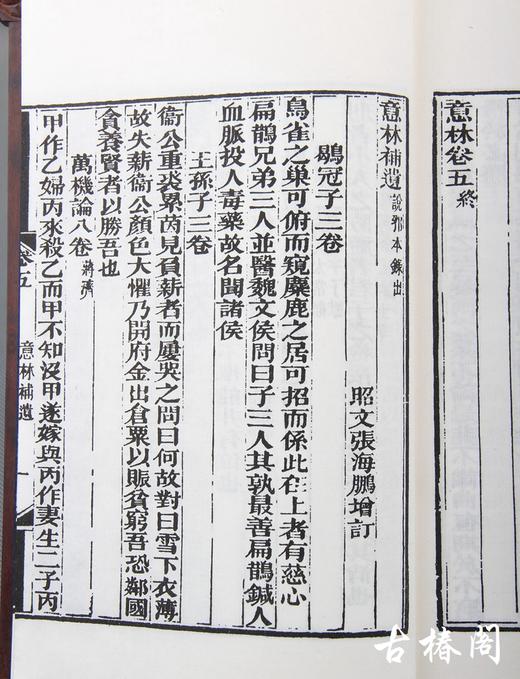 意林卷五終
意林補遺說郛本錄出
昭文張海鵬增訂
鶡冠子三卷
鳥雀之巢可俯而窺麋鹿之居可招而係此在上者有慈心
扁鵲兄弟三人並醫魏文侯問曰子三人其孰最善扁鵲鍼人
血脈投人毒藥故名聞諸侯
王孫子三卷
衞公重裘累茵見負薪者而屢哭之問曰何故對曰雪下衣薄
故失薪衞公顏色大懼乃開府金出倉粟以賑貧窮吾恐鄰國
貪養賢者以勝吾也
萬機論八卷蔣濟
甲作乙婦丙來殺乙而甲不知沒甲遂嫁與丙作妻生二子丙
卷五
意林補遺
一
古椿阁